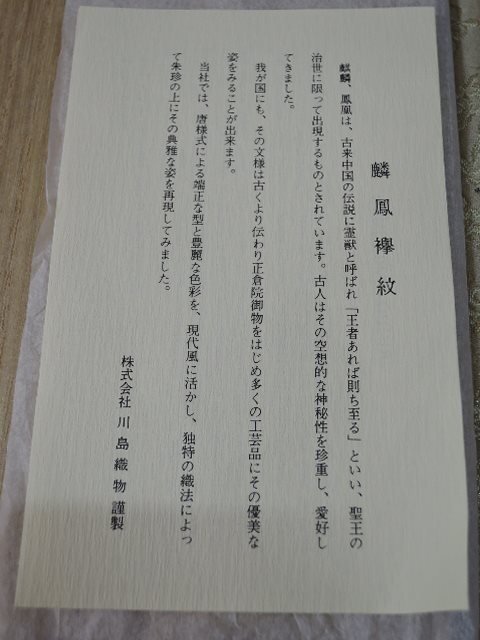 麟鳳襷紋
麒麟、鳳凰は、古来中国の伝説に霊獣と呼ばれ「王者あれば則ち至る」といい、聖王の
治世に限って出現するものとされています。古人はその空想的な神秘性を珍重し、愛好し
てきました。
我が国にも、その文様は古くより伝わり正倉院御物をはじめ多くの工芸品にその優美な
姿をみることが出来ます。
当社では、唐様式による端正な型と豊麗な色彩を、現代風に活かし、独特の織法によっ
て朱珍の上にその典雅な姿を再現してみました。
株式会社 川島織物謹製